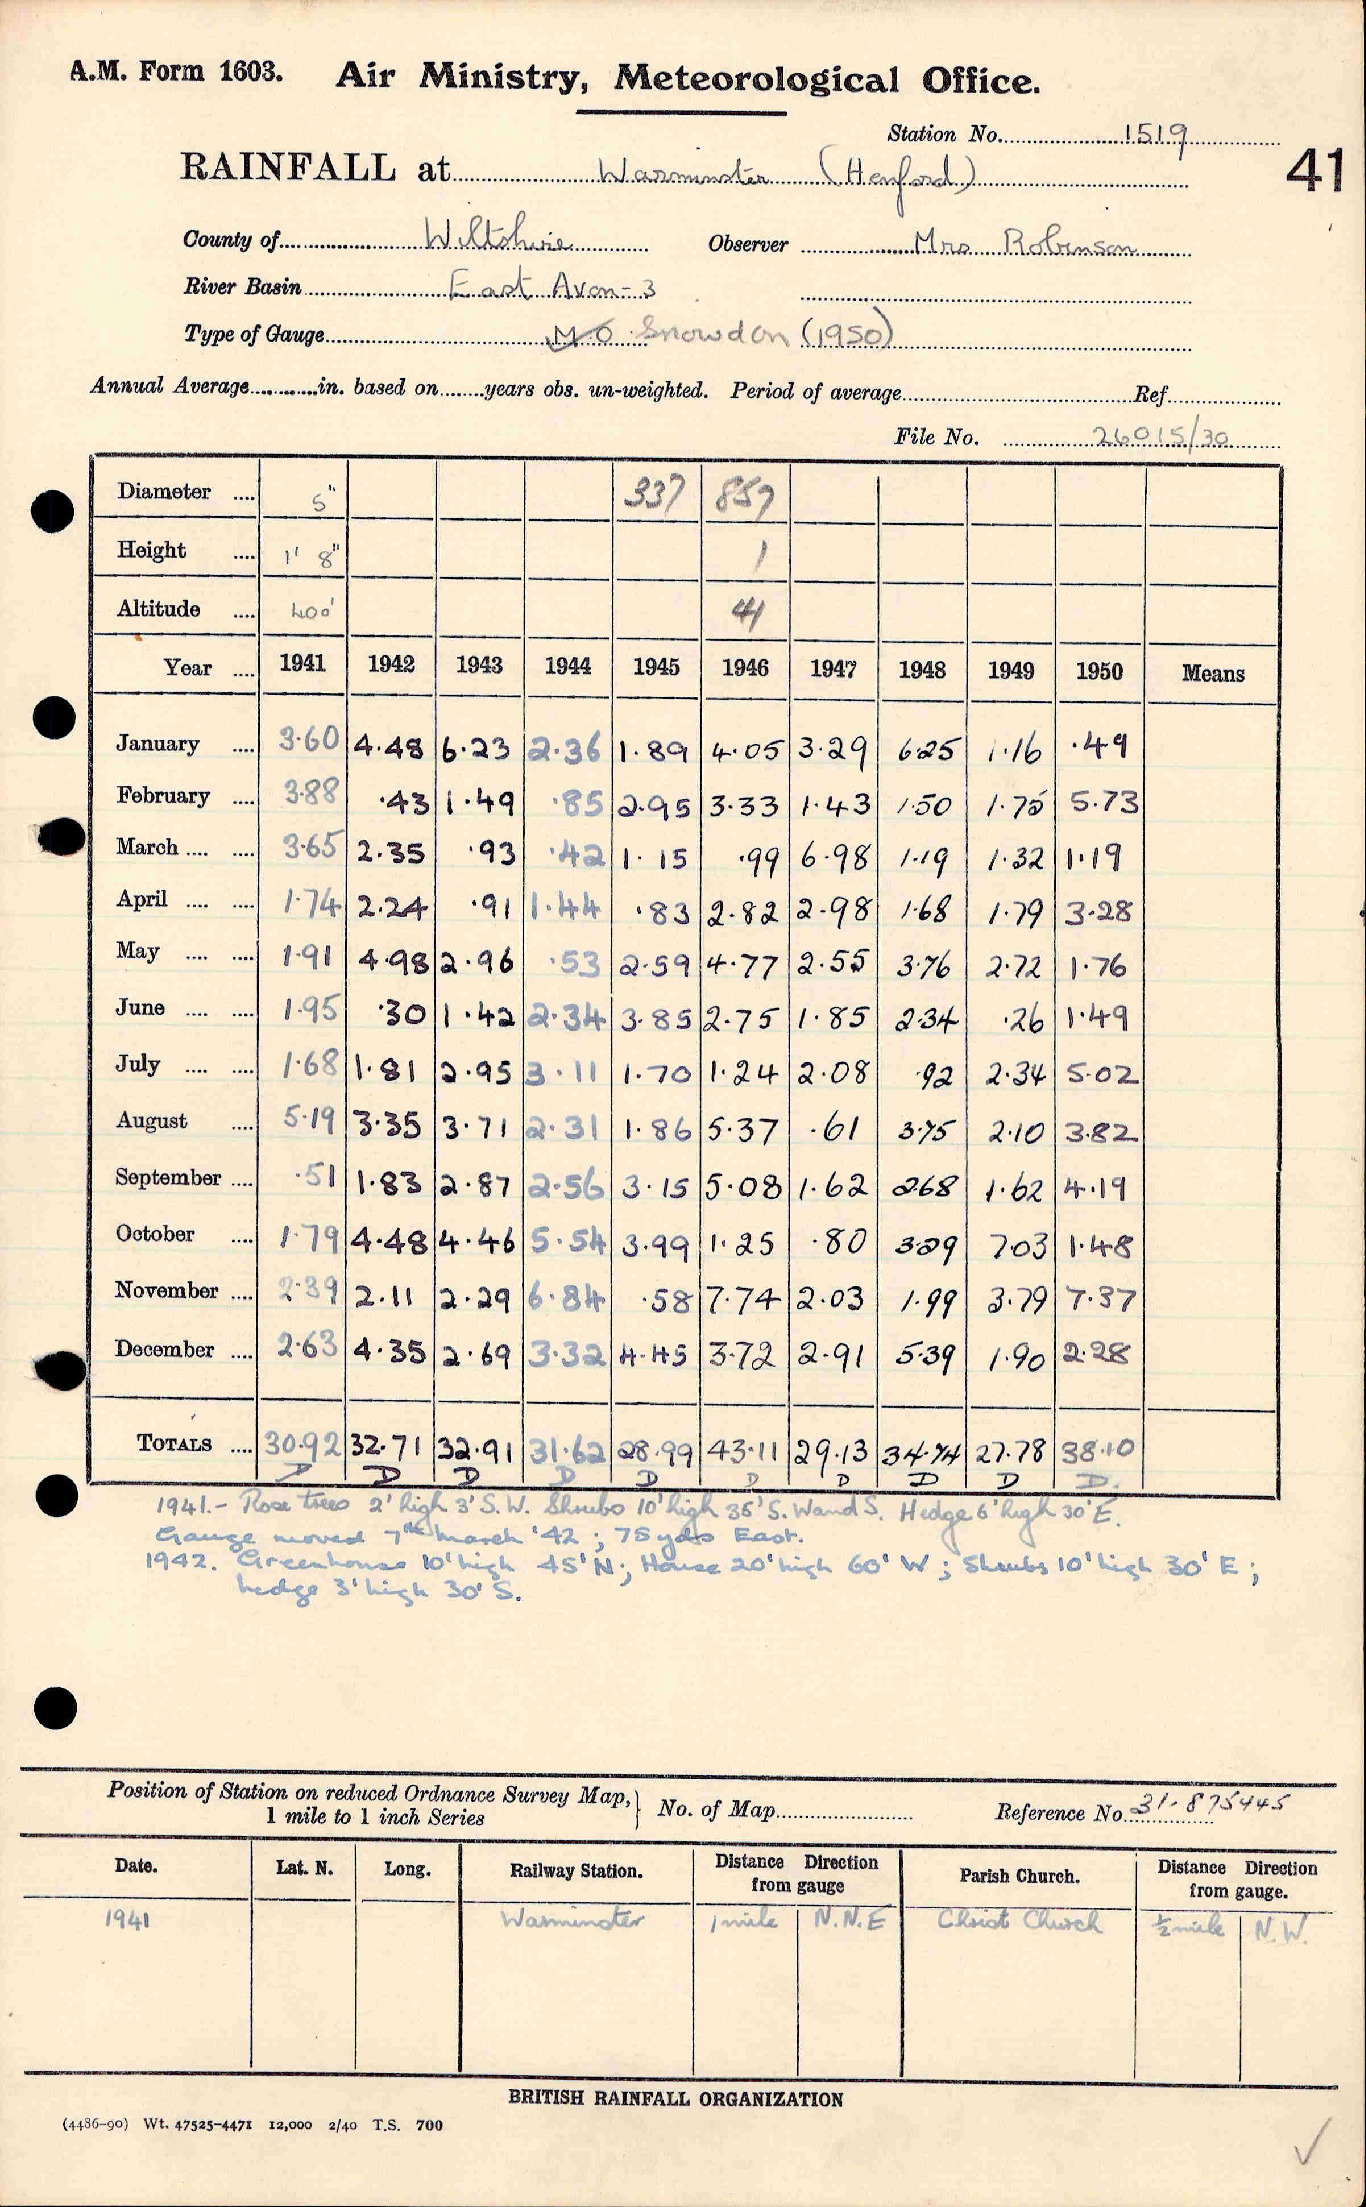 A.M. Form 1603. Air Ministry, Meteorological Office.
Station No. 1519
41
RAINFALL at Warminster (Henford)
County of Wiltshire Observer Mrs Robinson
River Basin East Avon-3
Type of Gauge M.O Snowdon (1950)
Annual Average in. based on years obs. un-weighted. Period of average Ref
File No. 26015/30
Diameter 5" 337 857
Height 1' 8" 1
Altitude 400' 41
Year 1941 1942 1943 1944 1945 1946 1947 1948 1949 1950 Means
January 3.60 4.48 6.23 2.36 1.89 4.05 3.29 6.25 1.16 .49
February 3.88 .43 1.49 .85 2.95 3.33 1.43 1.50 1.75 5.73
March 3.65 2.35 .93 .42 1.15 .99 6.98 1.19 1.32 1.19
April 1.74 2.24 .91 1.44 .83 2.82 2.98 1.68 1.79 3.28
May 1.91 4.98 2.96 .53 2.59 4.77 2.55 3.76 2.72 1.76
June 1.95 .30 1.42 2.34 3.85 2.75 1.85 2.34 .26 1.49
July 1.68 1.81 2.95 3.11 1.70 1.24 2.08 .92 2.34 5.02
August 5.19 3.35 3.71 2.31 1.86 5.37 .61 3.75 2.10 3.82
September .51 1.83 2.87 2.56 3.15 5.08 1.62 2.68 1.62 4.19
October 1.79 4.48 4.46 5.54 3.99 1.25 .80 3.29 7.03 1.48
November 2.39 2.11 2.29 6.84 .58 7.74 2.03 1.99 3.79 7.37
December 2.63 4.35 2.69 3.32 4.45 3.72 2.91 5.39 1.90 2.28
TOTALS 30.92 32.71 32.91 31.62 28.99 43.11 29.13 34.74 27.78 38.10
D D D D D D D D D D.
1941.- Rose trees 2' high 3' S.W. Shrubs 10' high 35' S. W and S. Hedge 6' high 30' E.
Gauge moved 7th March '42; 75 yds East.
1942. Greenhouse 10' high 45' N; House 20' high 60' W; Shrubs 10' high 30' E;
hedge 3' high 30' S.
Position of Station on reduced Ordnance Survey Map,
1 mile to 1 inch Series
No. of Map Reference No. 31.875445
Date. Lat. N. Long. Railway Station. Distance Direction from gauge Parish Church. Distance Direction from gauge.
1941 Warminster 1 mile N.N.E Christ Church ½ mile N.W.
BRITISH RAINFALL ORGANIZATION
(4486-90) Wt. 47525-4471 12,000 2/40 T.S. 700